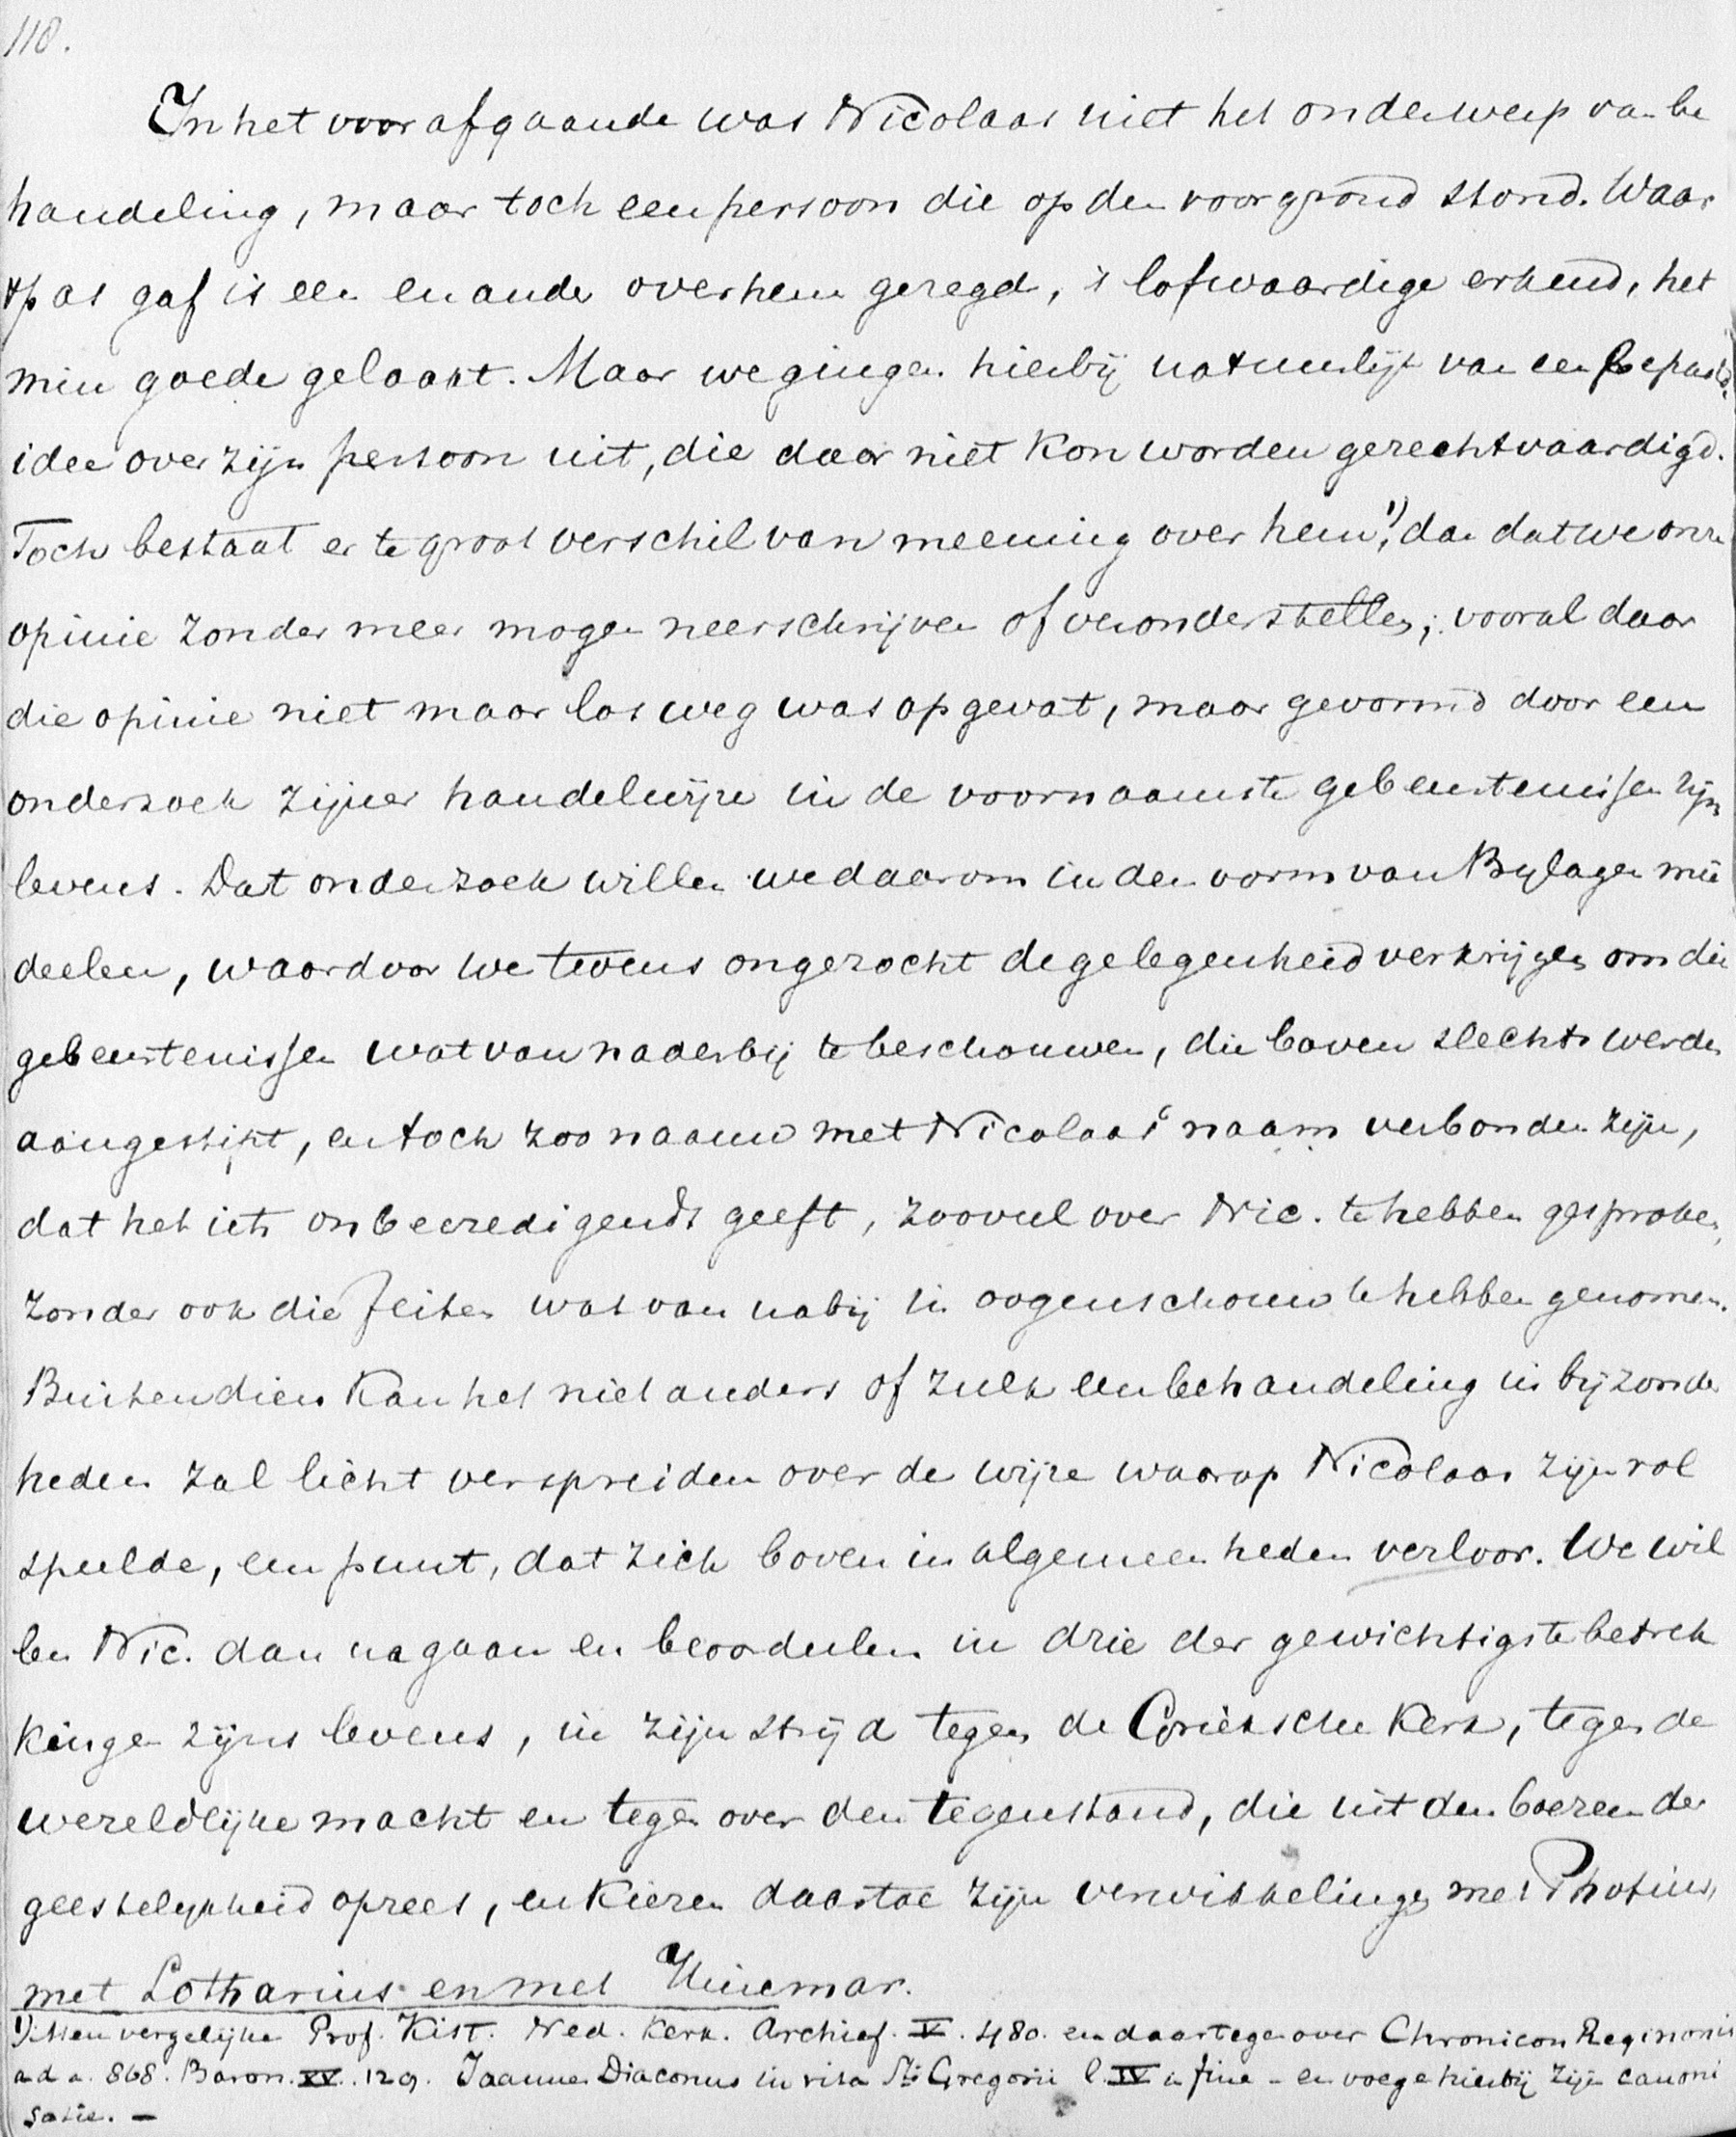 118.
In het voorafgaande was Nicolaas niet het onderwerp van be
handeling, maar toch een persoon die op den voorgrond stond. Waar
't pas gaf is een en ander over hem gezegd, 't lofwaardige erkend, het
min goede gelaakt. Maar we gingen hierbij natuurlijk van een bepaald
idee over zijn persoon uit, die daar niet kon worden gerechtvaardigd.
Toch bestaat er te groot verschil van meening over hem 1), dan dat we onze
opinie zonder meer mogen neerschrijven of veronderstellen; vooral daar
die opinie niet maar los weg was opgevat, maar gevormd door een
onderzoek zijner handelwijze in de voornaamste gebeurtenissen zijns
levens. Dat onderzoek willen we daarom in den vorm van Bylagen mee
deelen, waardoor we tevens ongezocht de gelegenheid verkrijgen om die
gebeurtenissen wat van naderbij te beschouwen, die boven slechts werden
aangestipt, en toch zoo naauw met Nicolaas' naam verbonden zijn,
dat het iets onbevredigends geeft, zooveel over Nic. te hebben gesproken,
zonder ook die feiten wat van nabij in oogenschouw te hebben genomen.
Buitendien kan het niet anders of zulk een behandeling in bijzonder
heden zal licht verspreiden over de wijze waarop Nicolaas zijn rol
speelde, een punt, dat zich boven in algemeenheden verloor. We wil
len Nic. dan nagaan en beoordeelen in drie der gewichtigste betrek
kingen zijns levens, in zijn strijd tegen de Grieksche Kerk, tegen de
wereldlijke macht en tegen over den tegenstand, die uit den boezem der
geestelykheid oprees, en kiezen daartoe zijn verwikkelingen met Photius,
met Lotharius en met Hincmar.
1) Men vergelijke Prof. Kist. Ned. Kerk. Archief. V. 480. en daartegenover Chronicon Reginonis
ad a. 868. Baron. XV. 129. Joannes Diaconus in vita Sti Gregorii l. IV in fine - en voege hierbij zijn canoni
satie. —